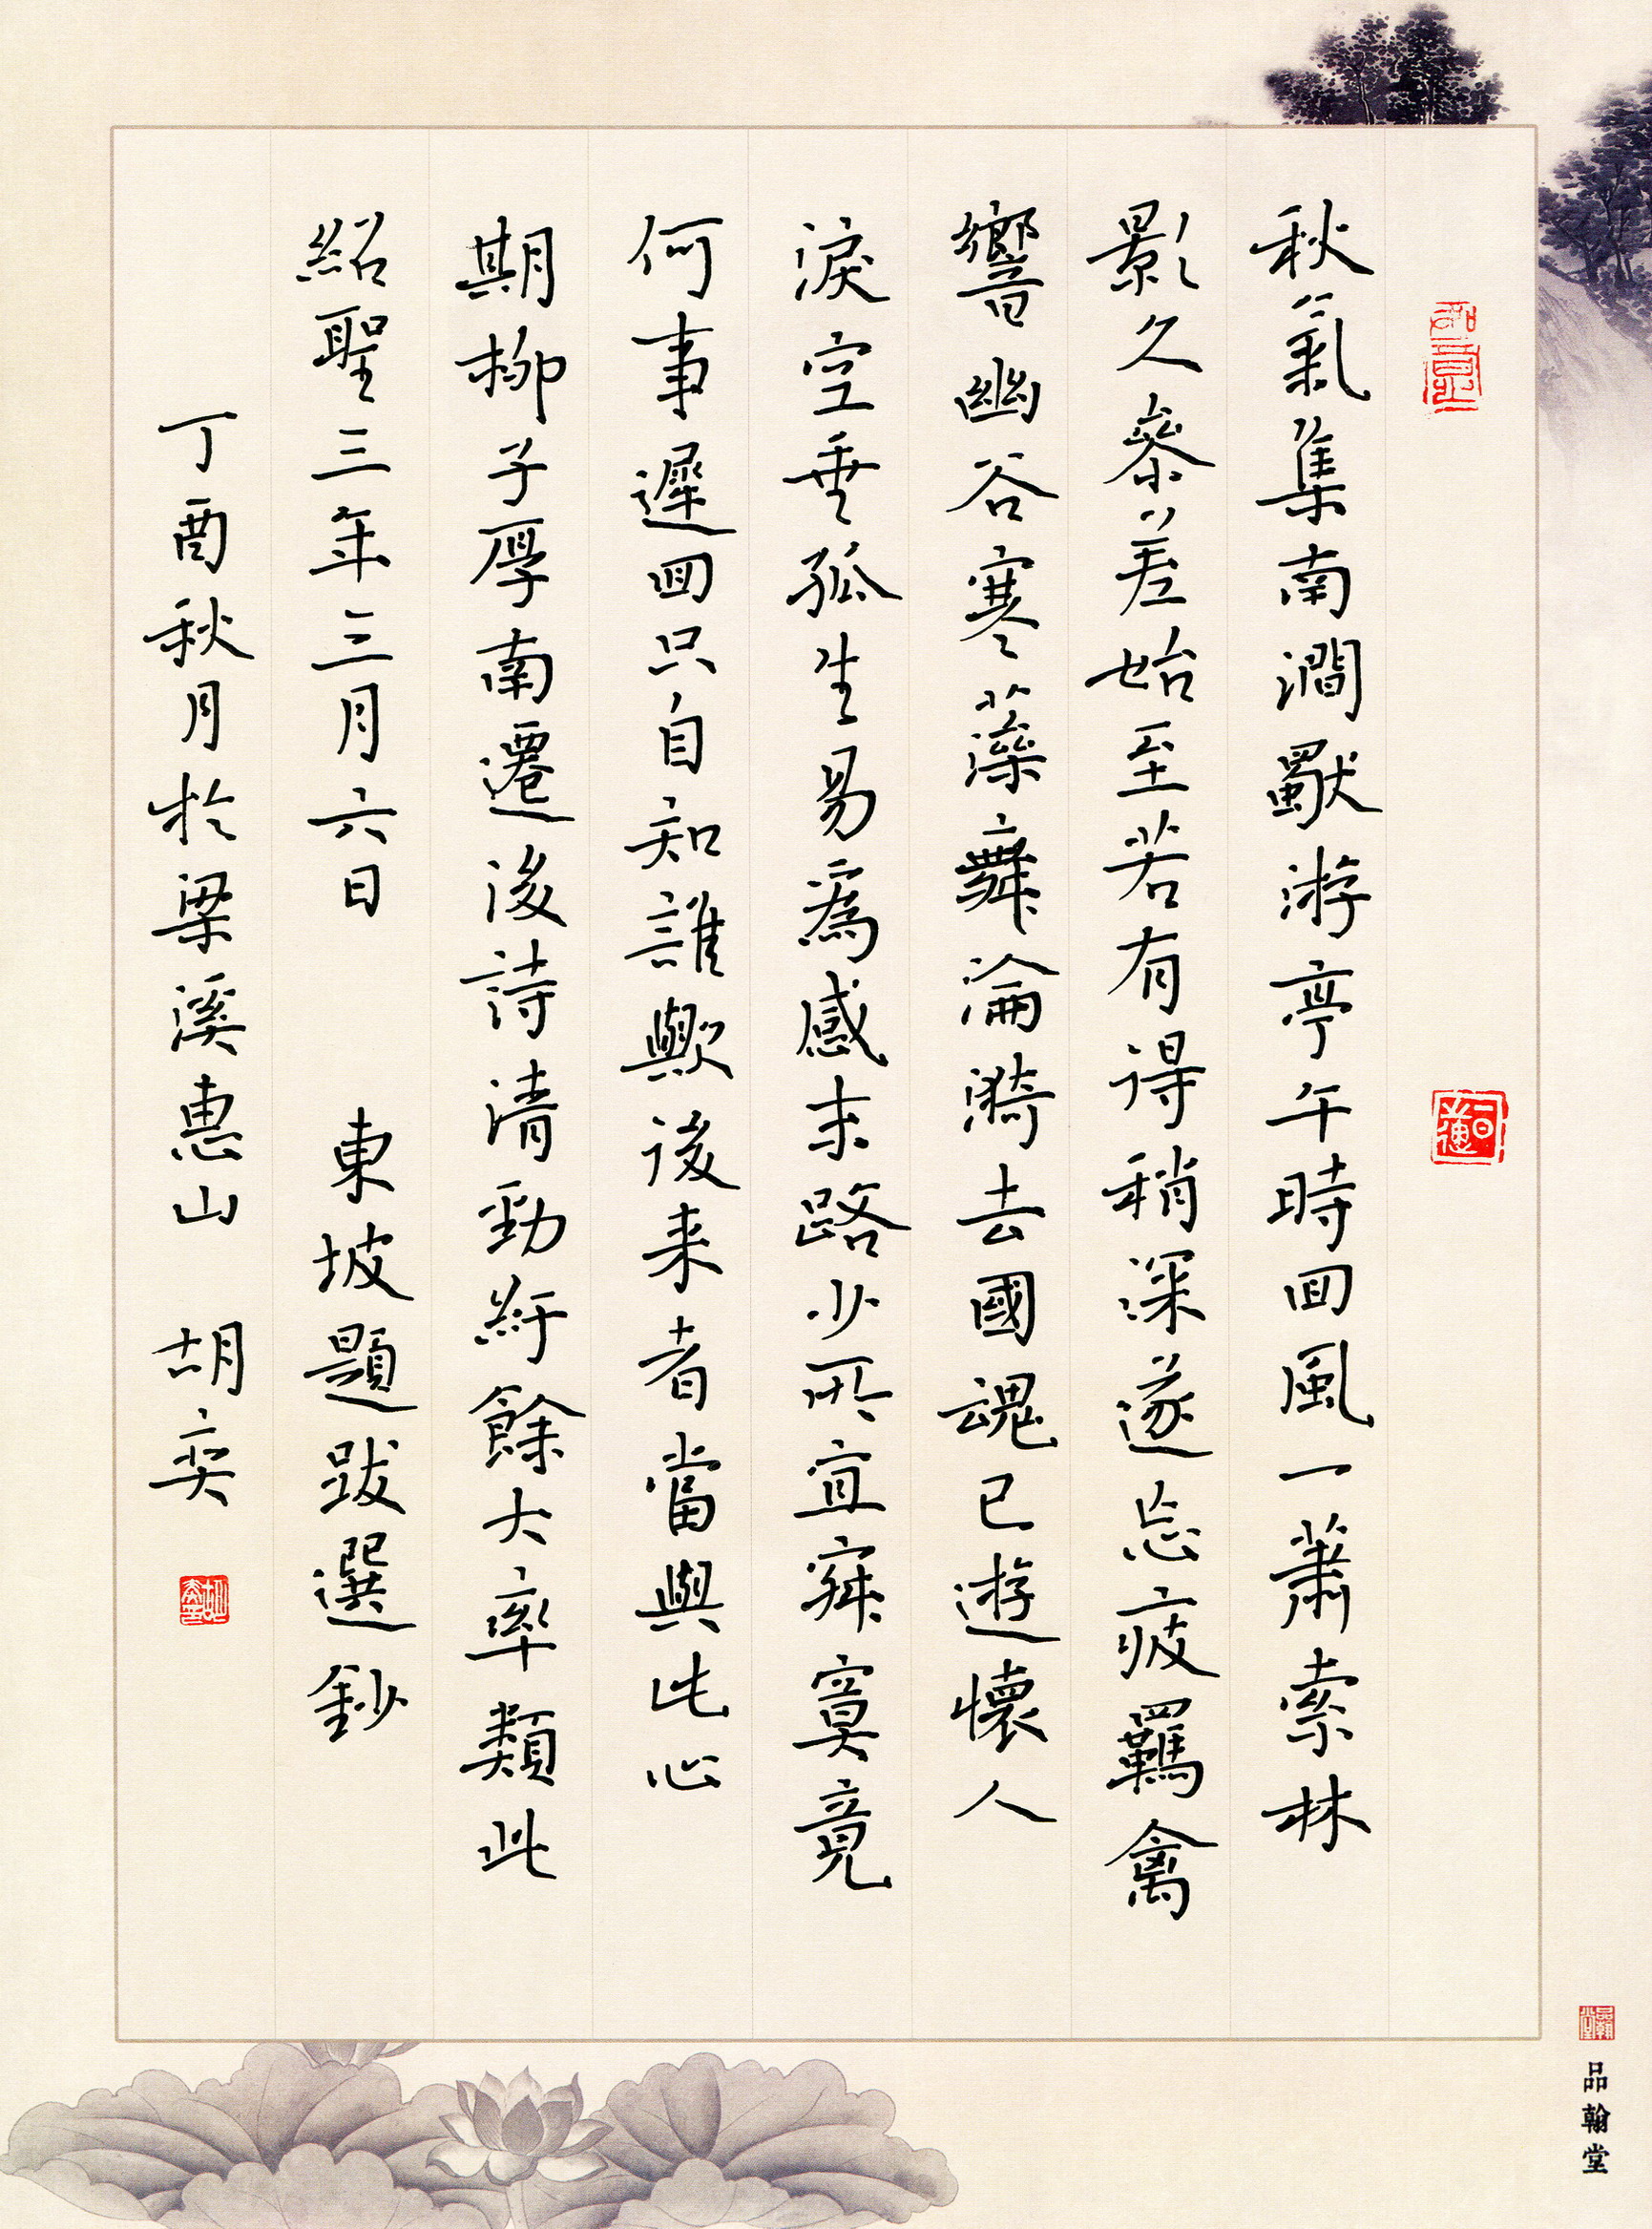 如意
秋氣集南澗獨游亭午時回風一蕭索林
影久參差始至若有得稍深遂忘疲羈禽
響幽谷寒藻舞淪漪去國魂已遊懷人
淚空垂孤生易爲感末路少所宜寂寞竟
何事遲回只自知誰歟後来者當與此心
期柳子厚南遷後詩清勁紆餘大率類此
紹聖三年三月六日 東坡題跋選鈔
丁酉秋月於梁溪惠山 胡奕
品翰堂